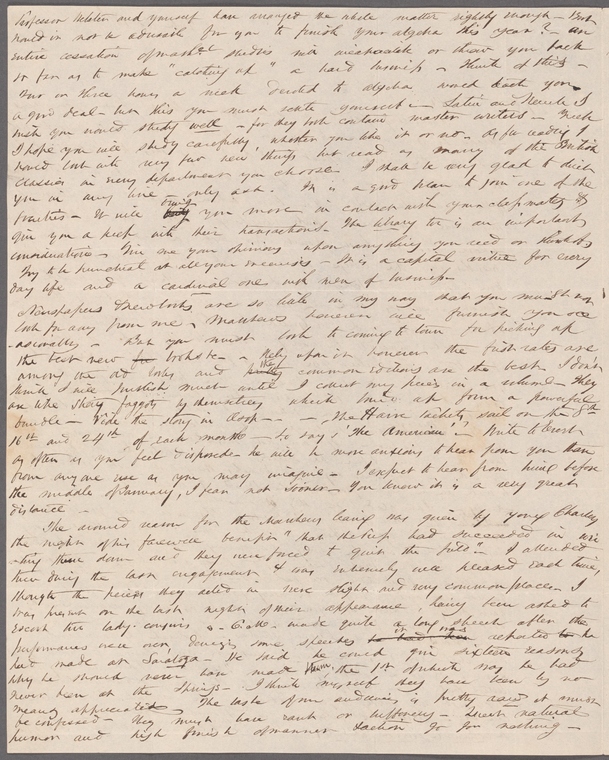 Professor and yourself have arranged the whole matter rightly enough - But
would it not be advisable for you to finish your algebra this year? - an
entire cessation of math^cl studies will incapacitate or throw you back
so far as to make "catching up" a hard business - Think of this -
Two or three hours a week devoted to algebra would teach you
a good deal - but this you must settle yourself - Latin and French I
wish you would study well - for they both contain master writers - Greek
I hope you will study carefully, whether you like it or no. As for reading I
would look into very few new things but read as many of the British
Classics in every department you choose. I shall be very glad to direct
you in any line - only ask. It is a good plan to join one of the
Societies - It will bring you more in contact with your classmates &
give you a peep into their transactions. The library too is an important
consideration - Give me your opinions upon anything you read or think of
Try to be punctual at all your exercises - It is a capital virtue for every
day life and a cardinal one with men of business -
Newspapers & new books are so little in my way that you must not
look for any from me - Matthews however will furnish you occ
-asionally - But you must look to coming to town for picking up
the best new books &c - Rely upon it however the first rates are
among the old ones and the common editions are the best. I don't
think I will publish much until I collect my pieces in a volume - They
are like skerry faggots by themselves which tied up form a powerful
bundle - Vide the story in Aesop - - The Havre packets sail on the 8th
16th and 24th of each month - so says 'The American' - Write to Evert
as often as you feel disposed - he will be more anxious to hear from you than
from anyone else as you may imagine - I expect to hear from him before
the middle of January, I fear not sooner - You know it is a very great
distance -
The avowed reason for the Mathews leaving was given by young Charley
the night of his farewell benefit "that the had succeeded in wri
-ting them down and they were forced to quit the field" - I attended
them during the last engagement & was extremely well pleased each time,
though the pieces they acted in were slight and very common place - I
was present on the last night of their appearance, having been asked to
escort two lady-cousins & - C. M. made quite a long speech after the
performances were over, denying some speeches it was reported he
had made at Saratoga - He said he could give sixteen reasons
why he should never have made them, the 1st of which was he had
never been at the Springs - I think myself they have been by no
means appreciated - The taste of our audiences is pretty it must
be confessed - They must have rant or buffoonery - Quiet natural
humor and high finish of manner & action go for nothing -